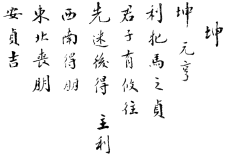 坤
坤 元亨
利牝馬之貞
君子有攸往
先迷後得 主利
西南得朋
東北喪朋
安貞吉